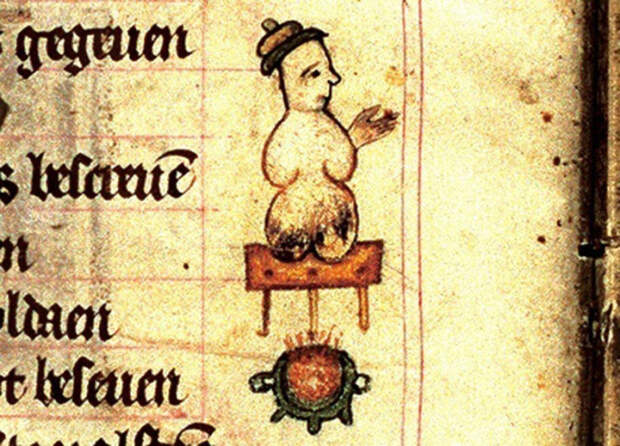 gegeuen
bescreuē
en
oldaen
t beseuen